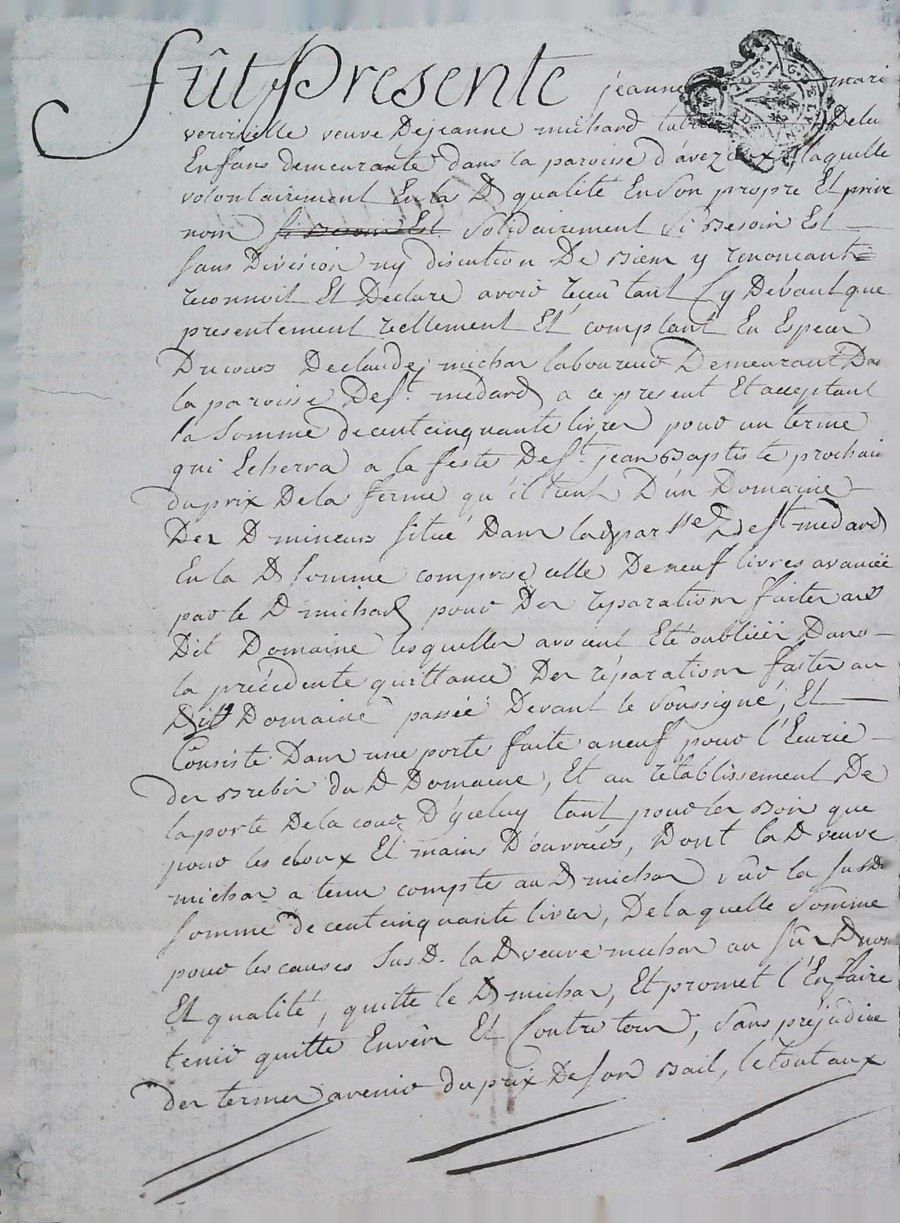 fût Presente jeanne mari
veuve De jeanne michard De la
Enfans demeurante dans la paroise d'aveze laquelle
volontairement En la D qualité En Son propre Et privé
nom si besoin Est Solidairement Si Besoin Est
sans Division ny discution De Biem y renoncant
reconnoit Et Declare avoir receu tant Cy Devant que
presentement réellement Et comptant En Espece
Ducours De claude michar laboureur Demeurant Da
la paroisse De St. medard a ce present Et acceptant
la Somme de cent cinquante livres pour un terme
qui Echerra a la feste De St. jean Baptiste prochain
du prix De la ferme qu'il tient D'un Domaine
Des D mineurs situé Dans lad parsse De St medard
En la D somme comprise celle De neuf livres avancée
par le D michar pour Des reparations faites au
Dit Domaine lesquelles avoient Eté oubliées Dans
la précédente quittance Des réparations faites au
Dit Domaine passée Devant le Soussigné, Et
Consiste Dans une porte faite a neuf pour l'Ecurie
des Brebis du D Domaine, Et au rétablissement De
la porte De la cour D'yceluy tant pour les Bois que
pour les cloux Et mains D'ouvrées, Dont la D veuve
michar a tenu compte au D michar sur la susD
somme de cent cinquante livres, De laquelle Somme
pour les causes SusD. la D veuve michar au sûs D nom
Et qualité, quitte le D michar, Et promet l'En faire
tenir quitte Envers Et Contre tous, Sans préjudice
des termes avenir du prix De son Bail, le tout aux